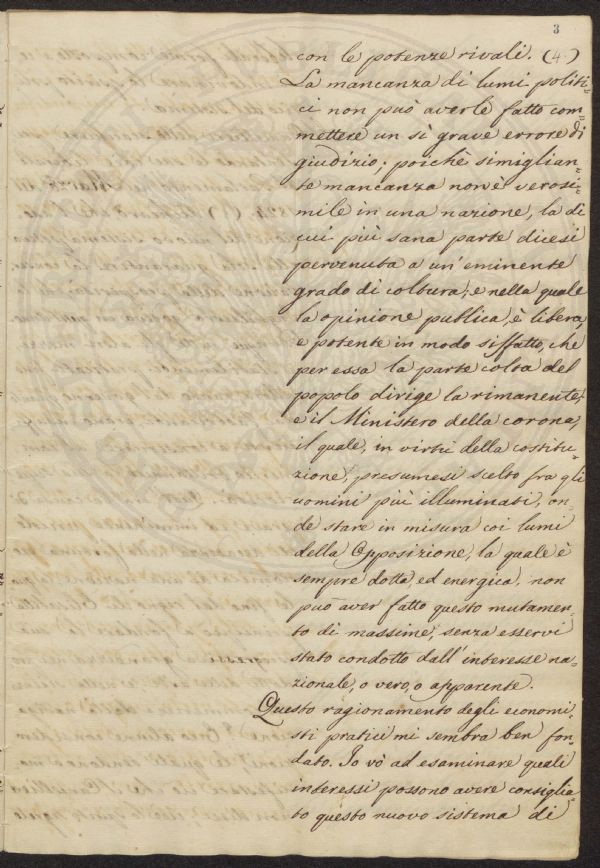 3
con le potenze rivali. (4.)
La mancanza di lumi politi=
ci non può averle fatto com=
mettere un sì grave errore di
giudizio; poichè simiglian=
te mancanza non è verosi=
mile in una nazione, la di
cui più sana parte dicesi
pervenuta a un' eminente
grado di coltura, e nella quale
la opinione publica, è libera,
e potente in modo siffatto, che
per essa la parte colta del
popolo dirige la rimanente,
e il Ministero della corona,
il quale, in virtù della costitu=
zione, presumesi scelto fra gli
uomini più illuminati, on=
de stare in misura coi lumi
della Opposizione, la quale è
sempre dotta, ed energica. non
può aver fatto questo mutamen=
to di massime, senza esservi
stato condotto dall' interesse na=
zionale, o vero, o apparente.
Questo ragionamento degli economi=
sti pratici mi sembra ben fon=
dato. Io vò ad esaminare quali
interessi possono avere consiglia=
to questo nuovo sistema di